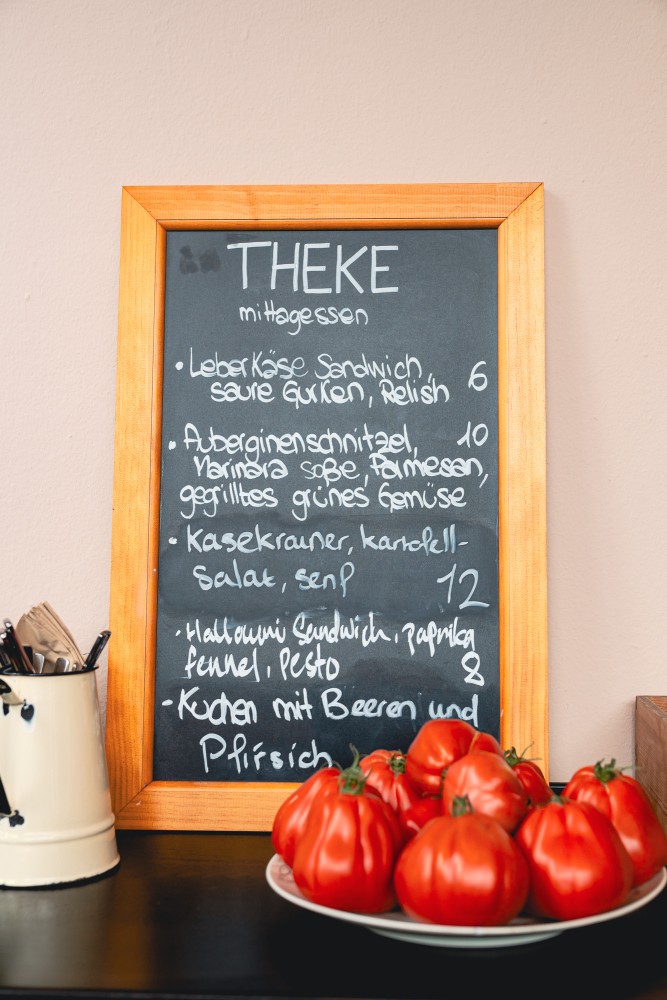 THEKE
mittagessen
• LeberKäse Sandwich, 6
saure Gurken, Relish
• Auberginenschnitzel, 10
Marinara soße, Parmesan,
gegrilltes grünes Gemüse
• Kasekrainer, kartofell-
Salat, senf 12
• Halloumi Sandwich, paprika
fennel, Pesto 8
• Kuchen mit Beeren und
Pfirsich